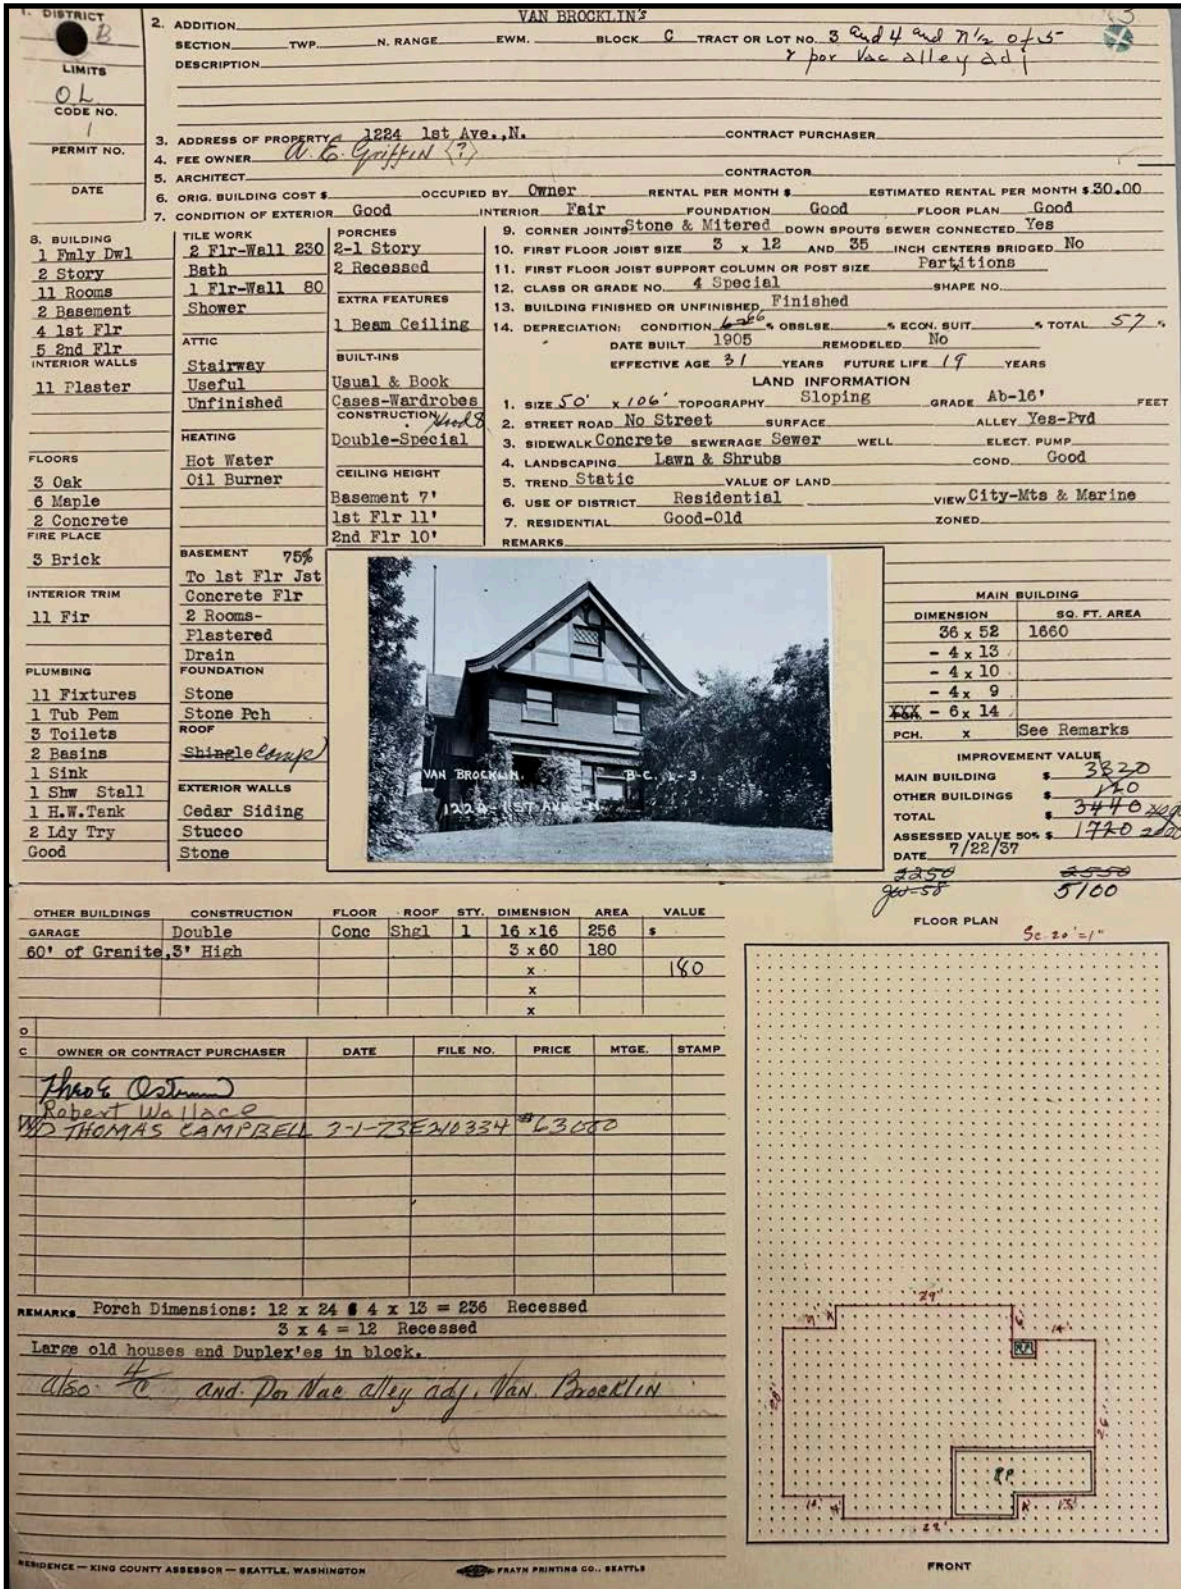 1. DISTRICT
B
LIMITS
OL
CODE NO.
1
PERMIT NO.
DATE
VAN BROCKLIN'S
2. ADDITION
SECTION TWP. N. RANGE EWM. BLOCK C TRACT OR LOT NO. 3 and 4 and N 1/2 of 5
DESCRIPTION & por Vac alley adj
3. ADDRESS OF PROPERTY 1224 1st Ave.,N. CONTRACT PURCHASER
4. FEE OWNER A. E. Griffin (?)
5. ARCHITECT CONTRACTOR
6. ORIG. BUILDING COST $ OCCUPIED BY Owner RENTAL PER MONTH $ ESTIMATED RENTAL PER MONTH $ 30.00
7. CONDITION OF EXTERIOR Good INTERIOR Fair FOUNDATION Good FLOOR PLAN Good
8. BUILDING
1 Fmly Dwl
2 Story
11 Rooms
2 Basement
4 1st Flr
5 2nd Flr
INTERIOR WALLS
11 Plaster
FLOORS
3 Oak
6 Maple
2 Concrete
FIRE PLACE
3 Brick
INTERIOR TRIM
11 Fir
PLUMBING
11 Fixtures
1 Tub Pem
3 Toilets
2 Basins
1 Sink
1 Shw Stall
1 H.W.Tank
2 Ldy Try
Good
TILE WORK
2 Flr-Wall 230
Bath
1 Flr-Wall 80
Shower
ATTIC
Stairway
Useful
Unfinished
HEATING
Hot Water
Oil Burner
BASEMENT 75%
To 1st Flr Jst
Concrete Flr
2 Rooms-
Plastered
Drain
FOUNDATION
Stone
Stone Pch
ROOF
Shingle Comp
EXTERIOR WALLS
Cedar Siding
Stucco
Stone
PORCHES
2-1 Story
2 Recessed
EXTRA FEATURES
1 Beam Ceiling
BUILT-INS
Usual & Book
Cases-Wardrobes
CONSTRUCTION
Double-Special
CEILING HEIGHT
Basement 7'
1st Flr 11'
2nd Flr 10'
9. CORNER JOINTS Stone & Mitered DOWN SPOUTS SEWER CONNECTED Yes
10. FIRST FLOOR JOIST SIZE 3 x 12 AND 35 INCH CENTERS BRIDGED No
11. FIRST FLOOR JOIST SUPPORT COLUMN OR POST SIZE Partitions
12. CLASS OR GRADE NO. 4 Special SHAPE NO.
13. BUILDING FINISHED OR UNFINISHED Finished
14. DEPRECIATION: CONDITION % OBSLSE. % ECON. SUIT. % TOTAL 57 %
DATE BUILT 1905 REMODELED No
EFFECTIVE AGE 31 YEARS FUTURE LIFE 19 YEARS
LAND INFORMATION
1. SIZE 50' x 106' TOPOGRAPHY Sloping GRADE Ab-16' FEET
2. STREET ROAD No Street SURFACE ALLEY Yes-Pvd
3. SIDEWALK Concrete SEWERAGE Sewer WELL ELECT. PUMP
4. LANDSCAPING Lawn & Shrubs COND. Good
5. TREND Static VALUE OF LAND
6. USE OF DISTRICT Residential VIEW City-Mts & Marine
7. RESIDENTIAL Good-Old ZONED
REMARKS
VAN BROCKLIN. B-C. L-3.
1224-1ST AVE-N.
MAIN BUILDING
DIMENSION SQ. FT. AREA
36 x 52 1660
- 4 x 13
- 4 x 10
- 4 x 9
- 6 x 14
PCH. x See Remarks
IMPROVEMENT VALUE
MAIN BUILDING $ 3320
OTHER BUILDINGS $ 120
TOTAL $ 3440
ASSESSED VALUE 50% $ 1720
DATE 7/22/37
2250 2550
5100
OTHER BUILDINGS CONSTRUCTION FLOOR ROOF STY. DIMENSION AREA VALUE
GARAGE Double Conc Shgl 1 16 x16 256 $
60' of Granite,3' High 3 x 60 180
x 180
x
x
O
C OWNER OR CONTRACT PURCHASER DATE FILE NO. PRICE MTGE. STAMP
Robert Wallace
WD THOMAS CAMPBELL 3-1-73 E210334 $63000
REMARKS Porch Dimensions: 12 x 24 & 4 x 13 = 236 Recessed
3 x 4 = 12 Recessed
Large old houses and Duplex'es in block.
also 4/C and Por Vac alley adj. Van Brocklin
FLOOR PLAN
Sc-20'=1"
29'
6'
14'
28'
26'
RP
10'
4'
22'
13'
FRONT
RESIDENCE — KING COUNTY ASSESSOR — SEATTLE, WASHINGTON
FRAYN PRINTING CO., SEATTLE